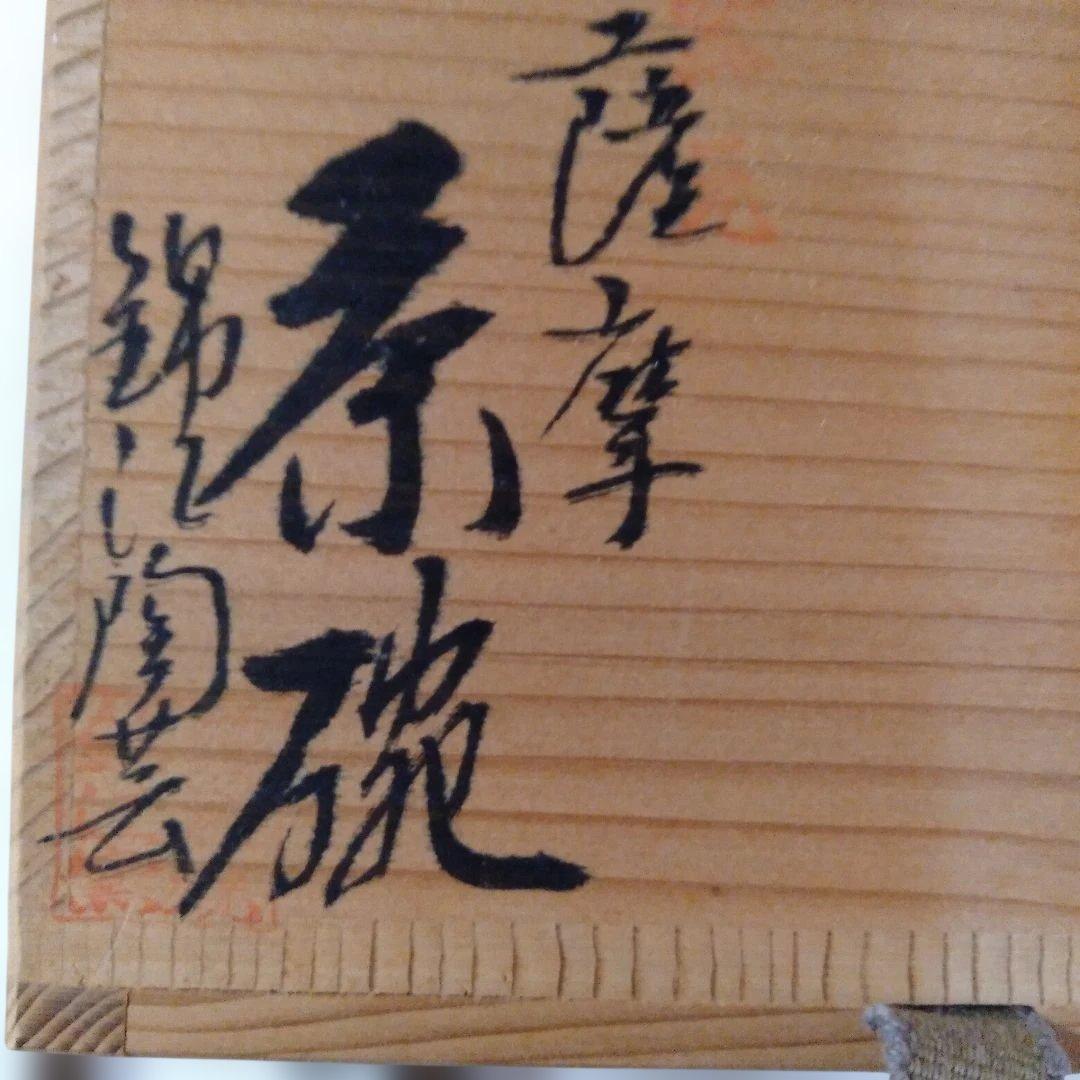 薩摩
茶碗
錦江陶芸